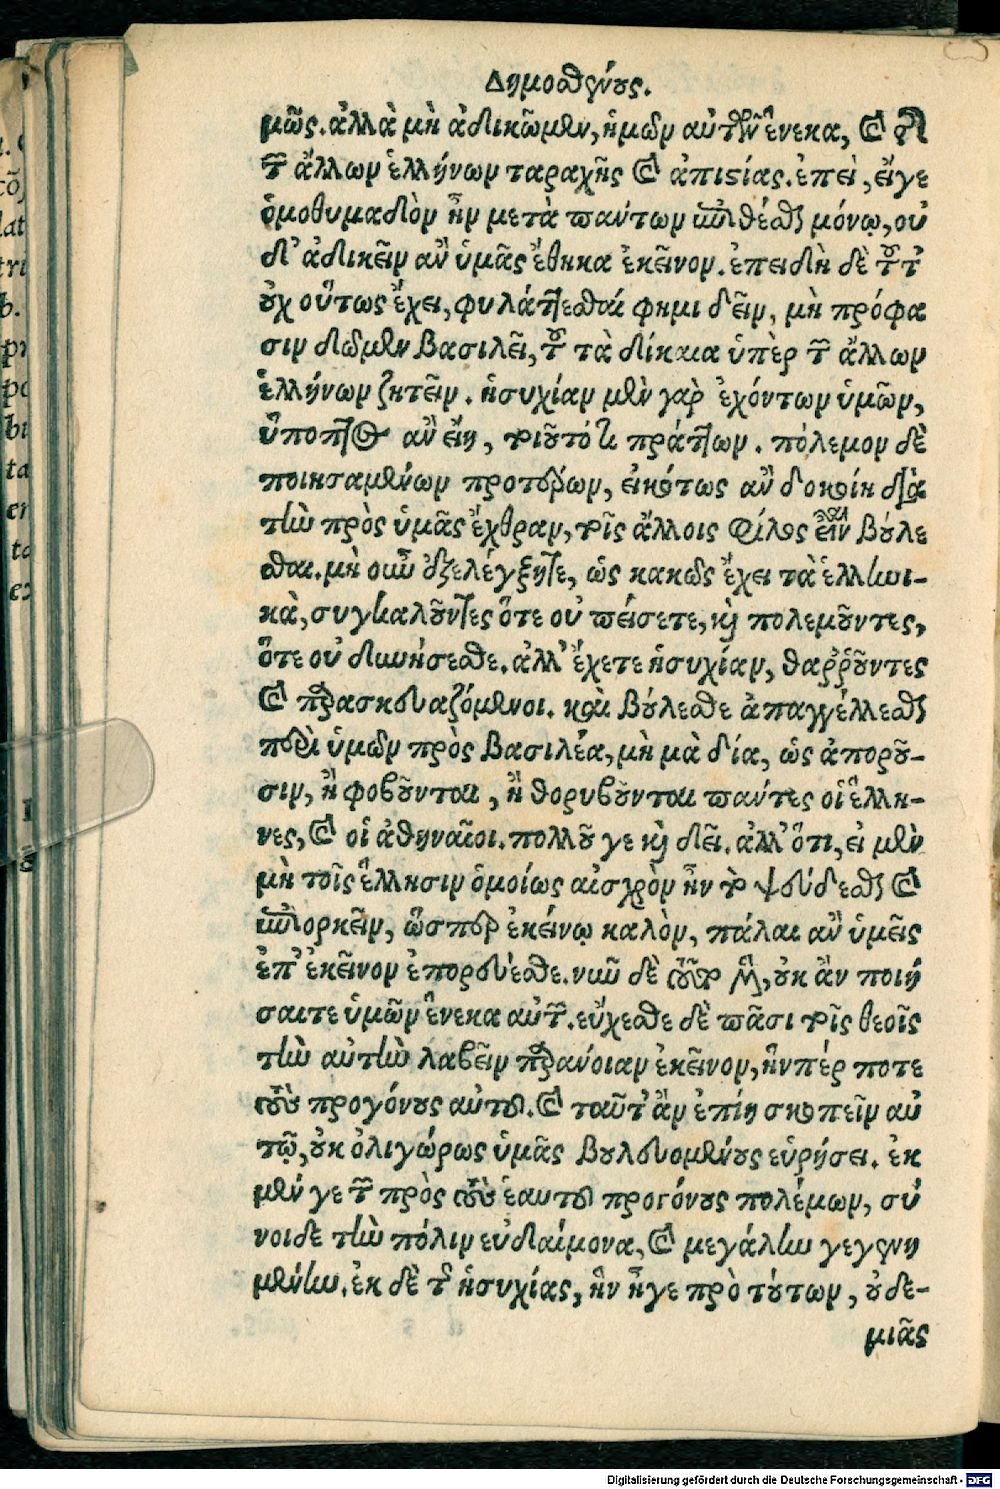 Δημοσθένους.
μῶς. ἀλλὰ μὴ ἀδικῶμεν, ἡμῶν αὐτῶν ἕνεκα, καὶ τῆς
τῶν ἄλλων ἑλλήνων ταραχῆς καὶ ἀπιστίας. ἐπεὶ, εἴγε
ὁμοθυμαδὸν ἦν μετὰ πάντων ἐπιθέσθαι μόνῳ, οὐ
δ' ἀδικεῖν ἂν ὑμᾶς ἔθηκα ἐκεῖνον. ἐπειδὴ δὲ τοῦτ'
οὐχ οὕτως ἔχει, φυλάττεσθαί φημι δεῖν, μὴ πρόφα
σιν δῶμεν βασιλεῖ, τοῦ τὰ δίκαια ὑπὲρ τῶν ἄλλων
ἑλλήνων ζητεῖν. ἡσυχίαν μὲν γὰρ ἐχόντων ὑμῶν,
ὕποπτος ἂν εἴη, τοιοῦτό τι πράττων. πόλεμον δὲ
ποιησαμένων προτέρων, εἰκότως ἂν δοκοίη διὰ
τὴν πρὸς ὑμᾶς ἔχθραν, τοῖς ἄλλοις φίλος εἶναι βούλε
σθαι. μὴ οὖν ἐξελέγξητε, ὡς κακῶς ἔχει τὰ ἑλληνι-
κὰ, συγκαλοῦντες ὅτε οὐ πείσετε, καὶ πολεμοῦντες,
ὅτε οὐ δυνήσεσθε. ἀλλ' ἔχετε ἡσυχίαν, θαῤῥοῦντες
καὶ παρασκευαζόμενοι. καὶ βούλεσθε ἀπαγγέλλεσθαι
περὶ ὑμῶν πρὸς βασιλέα, μὴ μὰ δία, ὡς ἀποροῦ-
σιν, ἢ φοβοῦνται, ἢ θορυβοῦνται πάντες οἱ ἕλλη-
νες, καὶ οἱ ἀθηναῖοι. πολλοῦ γε καὶ δεῖ. ἀλλ' ὅτι, εἰ μὲν
μὴ τοῖς ἕλλησιν ὁμοίως αἰσχρὸν ἦν τὸ ψεύδεσθαι καὶ
ἐπιορκεῖν, ὥσπερ ἐκείνῳ καλὸν, πάλαι ἂν ὑμεῖς
ἐπ' ἐκεῖνον ἐπορεύεσθε. νῦν δὲ τοῦτο μὲν, οὐκ ἂν ποιή
σαιτε ὑμῶν ἕνεκα αὐτῶν. εὔχεσθε δὲ πᾶσι τοῖς θεοῖς
τὴν αὐτὴν λαβεῖν παράνοιαν ἐκεῖνον, ἥνπέρ ποτε
τοὺς προγόνους αὐτοῦ. καὶ ταῦτ' ἂν ἐπίῃ σκοπεῖν αὐ
τῷ, οὐκ ὀλιγώρως ὑμᾶς βουλευομένους εὑρήσει. ἐκ
μέν γε τῶν πρὸς τοὺς ἑαυτοῦ προγόνους πολέμων, σύ
νοιδε τὴν πόλιν εὐδαίμονα, καὶ μεγάλην γεγενη
μένην. ἐκ δὲ τῆς ἡσυχίας, ἣν ἦγε πρὸ τούτων, οὐδε-
μιᾶς
Digitalisierung gefördert durch die Deutsche Forschungsgemeinschaft - DFG